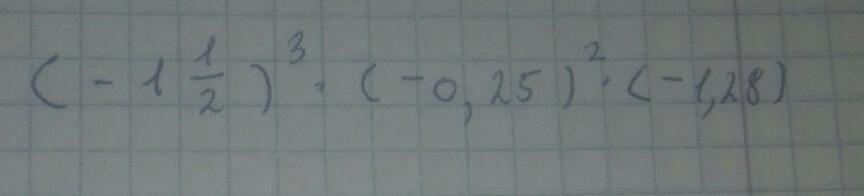 (-1 1/2)³ · (-0,25)² · (-1,28)